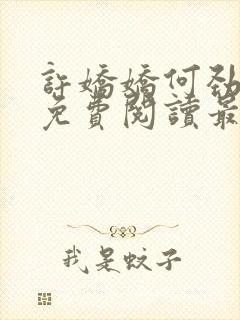 許嬌嬌何勁
免費閱讀最
我是蚊子